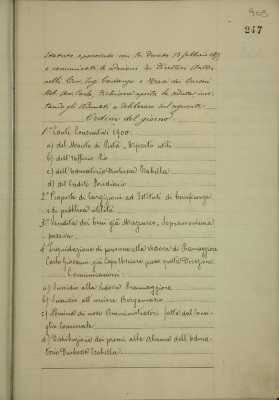 903
247
Statuto approvato con R. Decreto 13 febbraio
e comunicate le adesioni dei Direttori
Cav. Ing. Costanzo e dei Baroni
Cav. Carlo, dichiara aperta la seduta
gli Adunati a deliberare sul seguente
Ordine del giorno
1° Conti Consuntivi 1900.
a) del Monte di Pietà, Riparto utili
b) dell'Ufficio Pio
c) dell'Educatorio Duchessa Isabella
d) del Credito Fondiario
2° Proposte di Largizioni ad Istituti di beneficenza
e di pubblica utilità
3° Vendita dei beni già Sopravvenienza
passiva
4° Liquidazione di pensione alla Vedova di
Carlo Giovanni, già Capo Usciere presso questa Direzione.
Comunicazioni
a) Sussidio alla Vedova
b) Sussidio all'usciere Bergamasco
c) Nomina di nuovi Amministratori fatta dal Consi-
glio Comunale
d) Distribuzione dei premi alle Alunne dell'Educa-
torio Duchessa Isabella